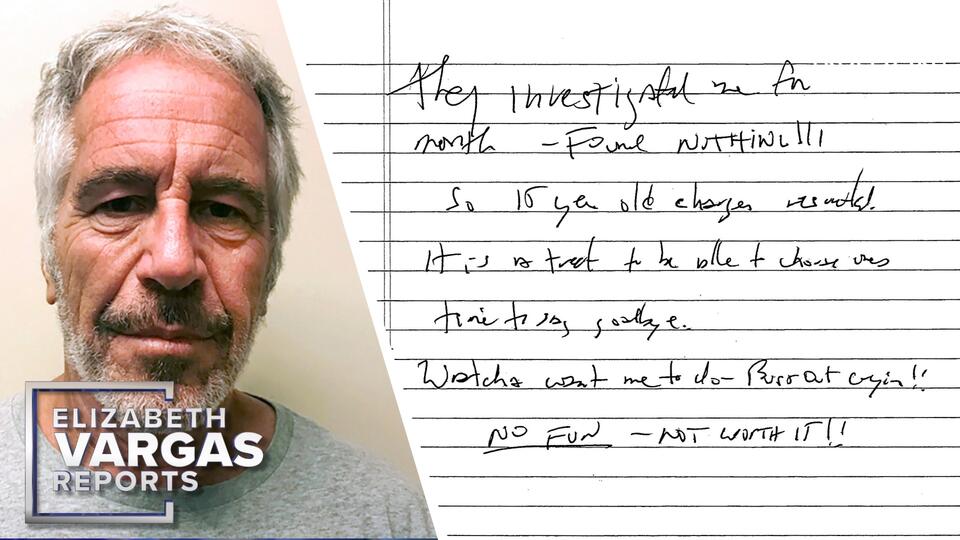 ELIZABETH
VARGAS
REPORTS
They investigated me for
month - Found NOTHING!!!
So 15 year old charges resulted.
It is a treat to be able to choose ones
time to say goodbye.
Watcha want me to do - Burst out cryin!!
NO FUN - NOT WORTH IT!!